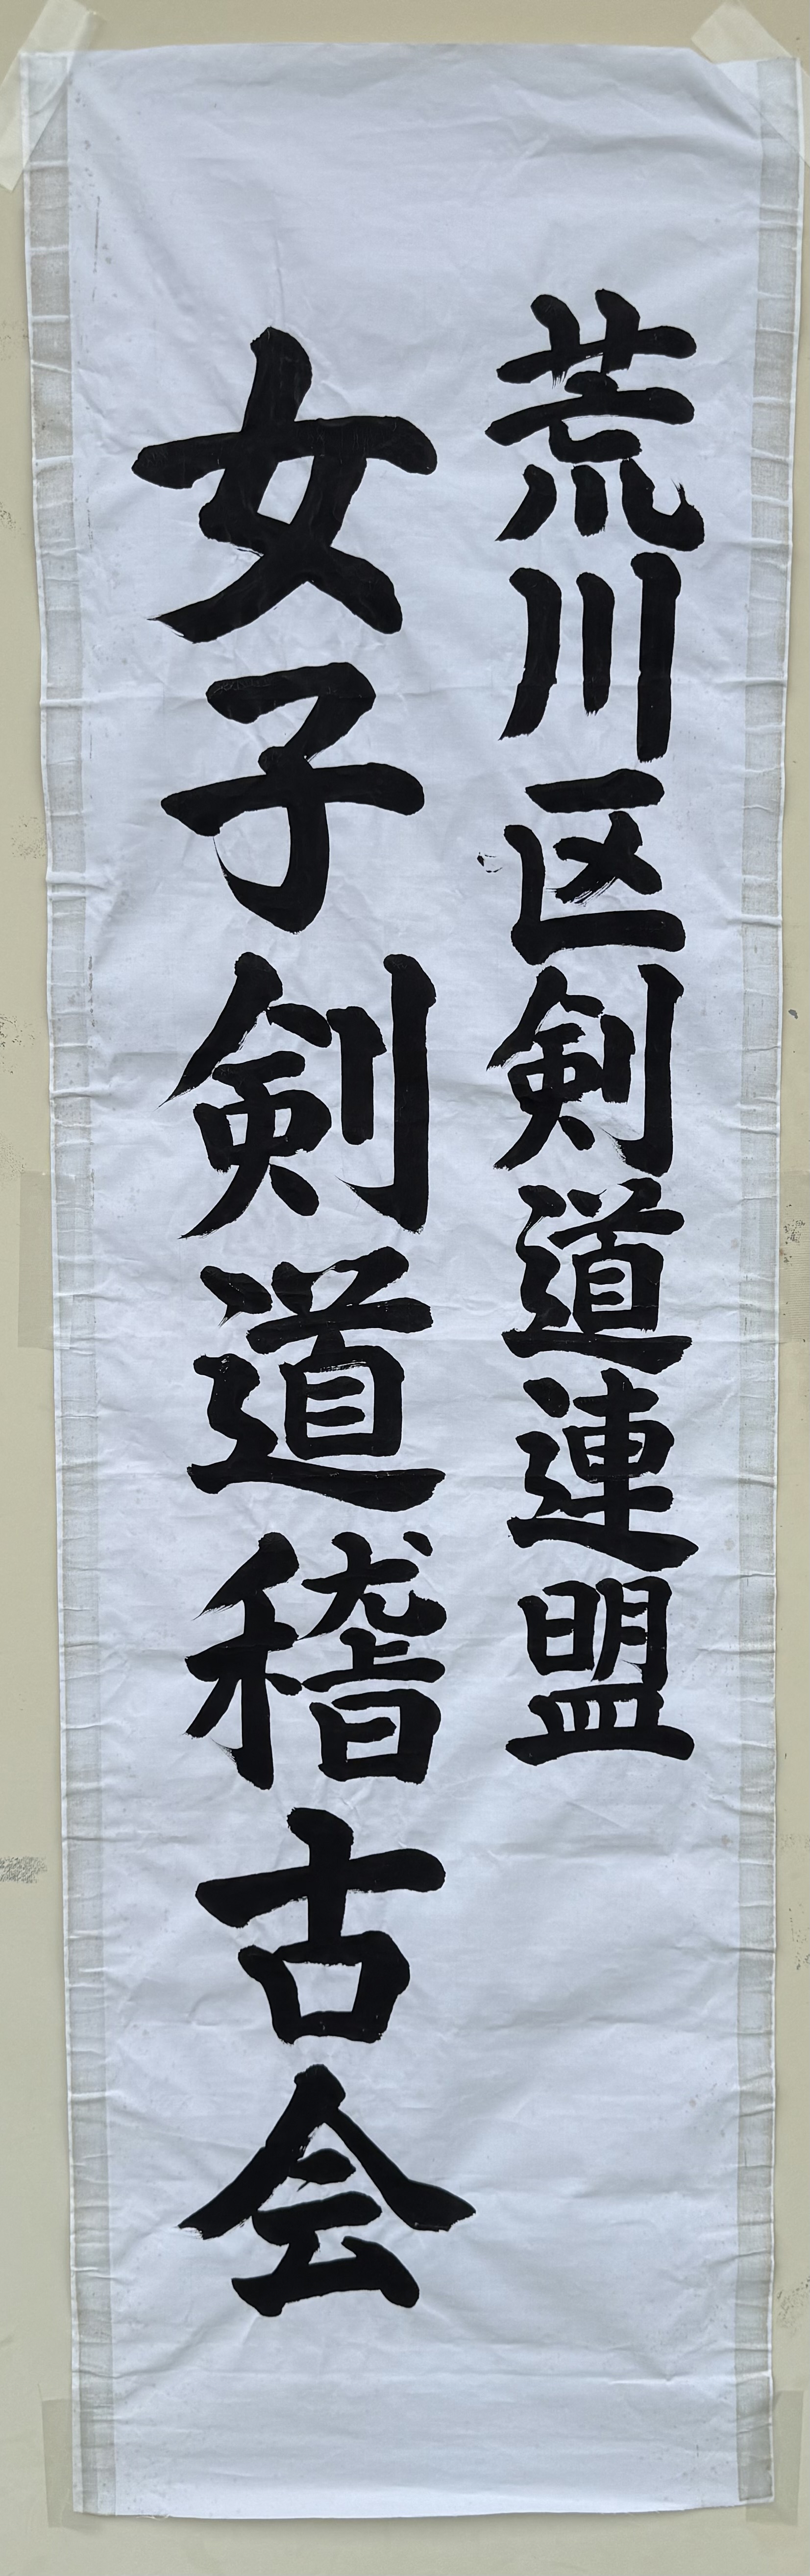 荒川区剣道連盟
女子剣道稽古会